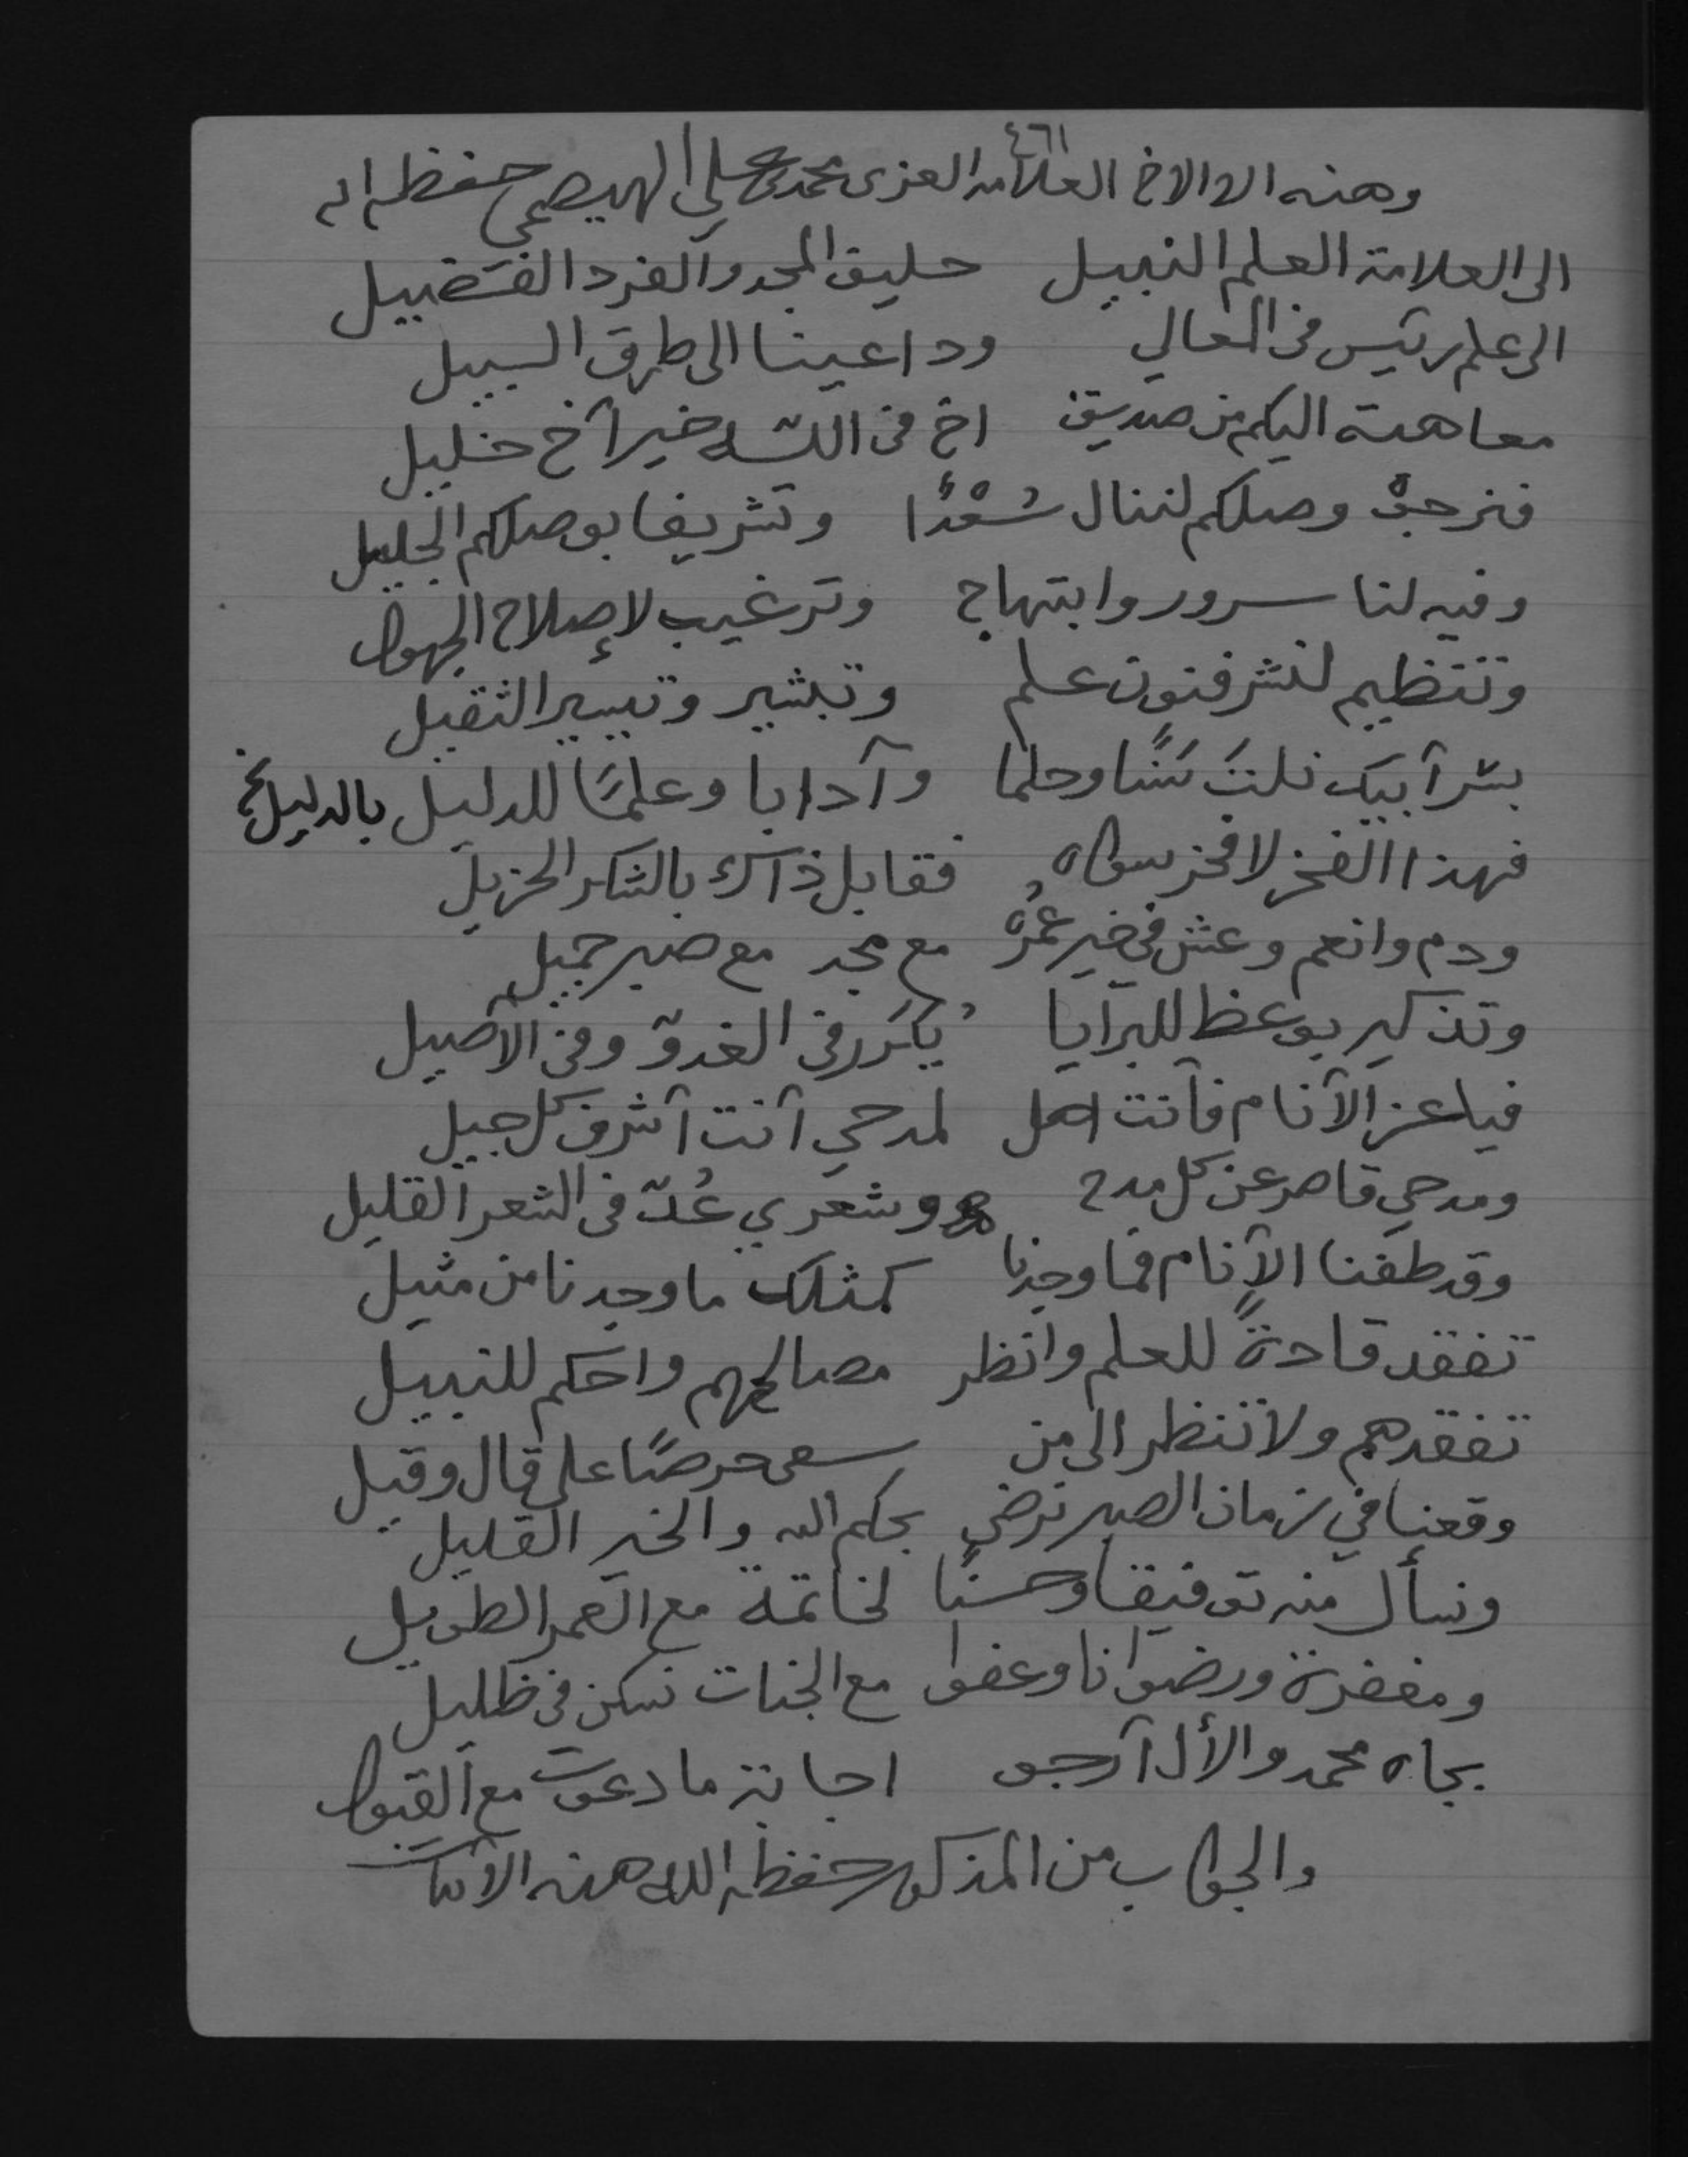 ٤٦١
وهذه الى الاخ العلامه العزى محمد علي الهيصمي حفظه الله
الى العلامة العلم النبيل حليف المجد والفرد الفضيل
الى علم رئيس في المعالي وداعينا الى طرق السبيل
معاهدة اليكم من صديق اخ في الله خير أخ خليل
فنرجو وصلكم لننال سُعْدًا وتشريفا بوصلكم الجليل
وفيه لنا سرور وابتهاج وترغيب لإصلاح الجهول
وتنظيم لنشر فنون علم وتبشير وتيسير الثقيل
بسرّ أبيك نلتَ سَنًا وحلما وآدابا وعلمًا للدليل بالدليل نخ
فهذا الفخر لا فخر سواه فقابل ذاك بالشكر الجزيل
ودم وانعم وعش في خير عمُرٍ مع مجد مع صبر جميل
وتذكير بوعظ للبرايا يُكَرر في الغدوّ وفي الأصيل
فيا عز الأنام فأنت اهل لمدحي أنت أشرف كل جيل
ومدحي قاصر عن كل مدح وشعري عُدّ في الشعر القليل
وقد طفنا الأنام فما وجدنا كمثلك ما وجدنا من مثيل
تفقد قادةً للعلم وانظر مصالحهم واحكم للنبيل
تفقدهم ولا تنظر الى من سعى حرصًا على قال وقيل
وقعنا في زمان الصبر نرضى بحكم الله والخير القليل
ونسأل منه توفيقا وحسنًا لخاتمة مع العمر الطويل
ومغفرة ورضوانا وعفوا مع الجنات نسكن في ظليل
بجاه محمد والأل أرجو اجابة ما دعوت مع القبول
والجواب من المذكور حفظه الله هذه الأبيات